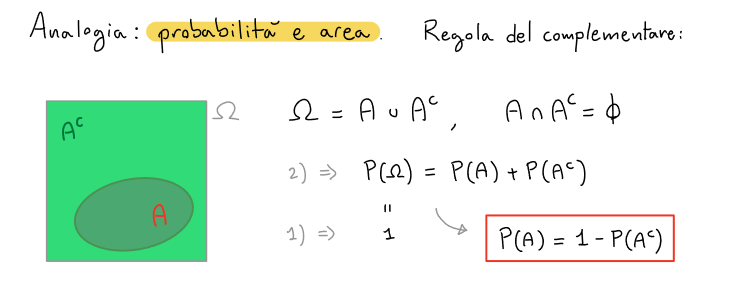 Analogia: probabilità e area. Regola del complementare:
Aᶜ Ω Ω = A ∪ Aᶜ, A ∩ Aᶜ = ϕ
2) ⇒ P(Ω) = P(A) + P(Aᶜ)
A
"
1) ⇒ 1
P(A) = 1 - P(Aᶜ)